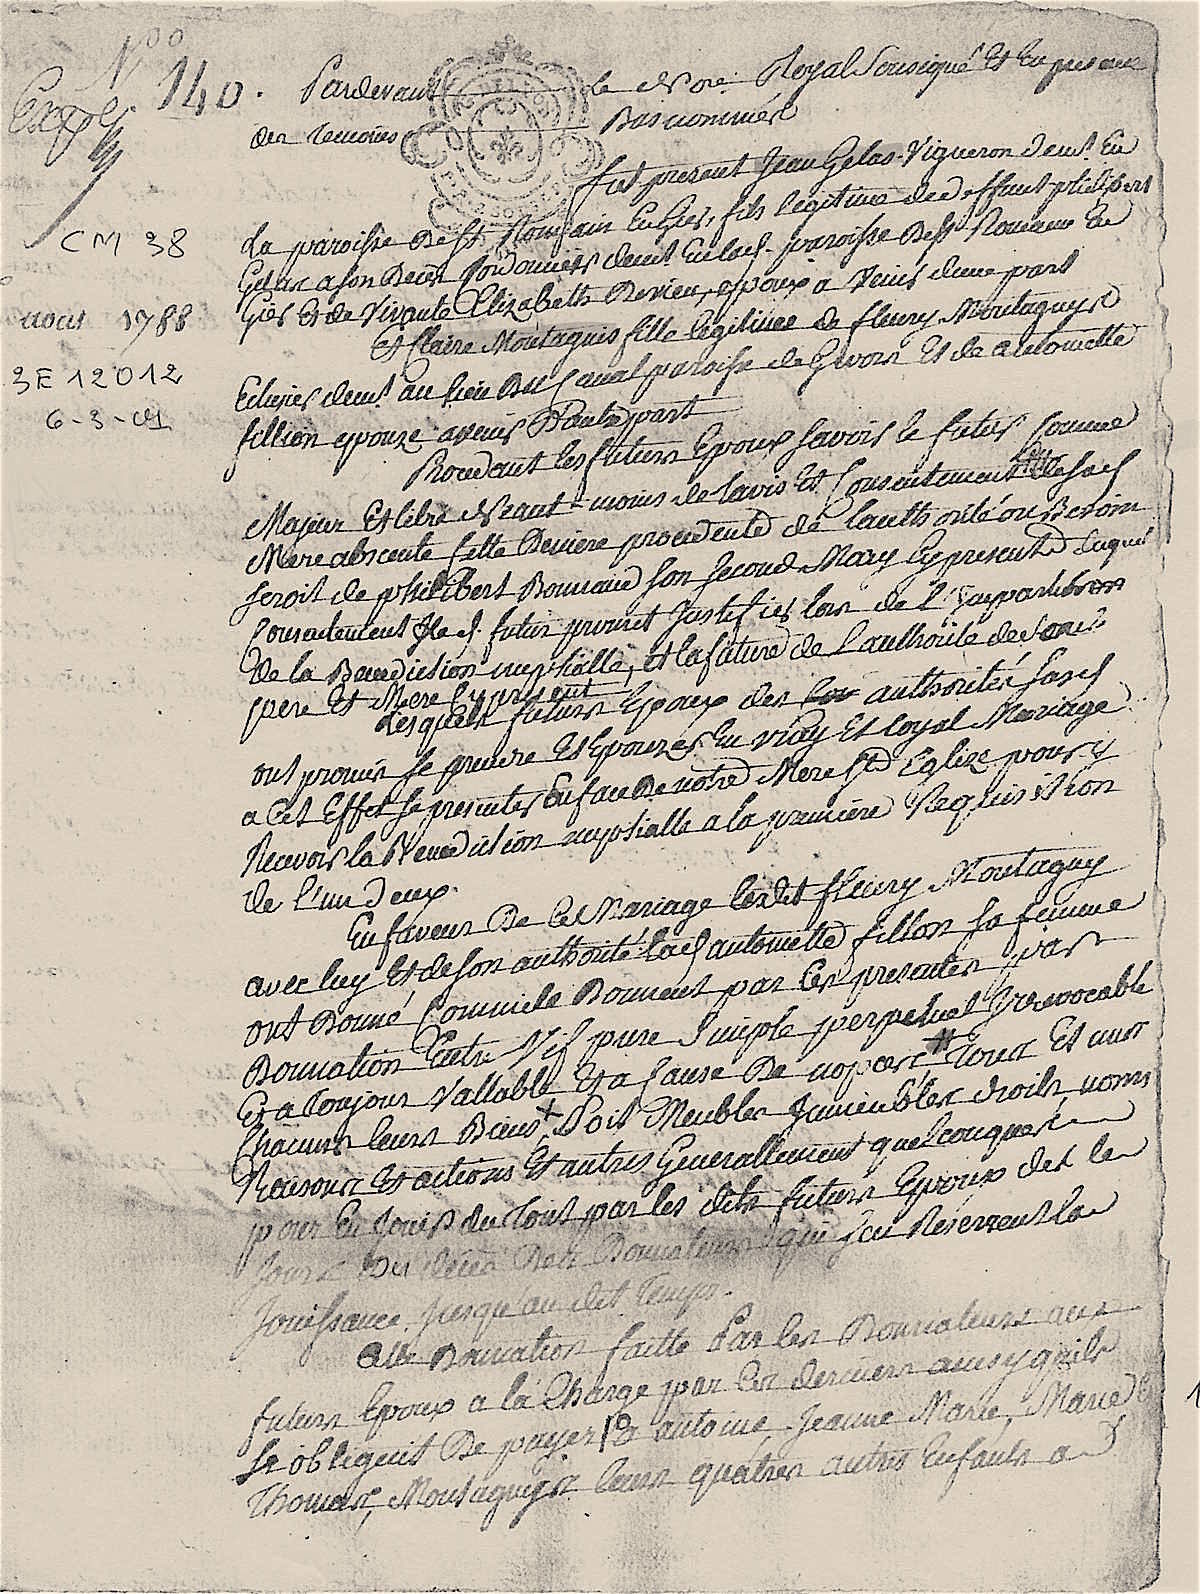 N°
140.
Expé
CM 38
aout 1788
3E 12012
6-3-01
Pardevant le No.re Royal Sousigné Et En presence
des temoins Bas nommés
fut present Jean Gelas Vigneron demt. En
La paroisse de St. Romain En Gier, fils legitime de deffunt philibert
Gelas a son deces Cordonnier demt. Enlad. paroisse de St. Romain En
Gier Et de Vivante Elizabeth Revieu, epoux a Venir dune part
Et Claire Montagnis fille legitime de fleury Montagnys
demt. au lieu du Canal paroisse de Givors Et de antoinette
fillion epouze avenir D'autre part
Procedant les futurs Epoux savoir le futur Comme
Majeur Et libre Neant-moins de lavis Et Consentement de sad.
Mere absente Cette Derniere procedente de lauthorité ou Besoin
seroit de philibert Bonnand son second Mary Cy present duquel
Consentement led. futur promet Justifier lors de L'
De la Benediction nuptialle, Et la future de L'authorité de ses
pere Et Mere Cy present
Lesquels futurs Epoux des authorités susd.
ont promis se prendre Et Epouzer En vray Et loyal Mariage
a Cet Effet se presenter En face De notre Mere Ste. Eglize pour y
Recevoir la Benediction nuptialle a la premiere Requisition
de l'un deux.
En faveur De Ce Mariage ledit fleury Montagny
avec luy Et de son authorité lad. antoinette fillon sa femme
ont Donné Comme ils Donnent par Ces presentes par
Donnation Entre Vif pure Simple perpetuel Irrevocable
Et a Toujour Vallable Et a Cause De nopces Tous Et uns
Chacuns leurs Biens + Soit Meubles Immeubles droits, noms
Raisons Et actions Et autres Generallement quelconques
pour En Jouir du Tout par les dits futurs Epoux des le
Jour Du deces Des Donnateurs qui sen Reservent la
Jouissance Jusqu'au dit Temps.
Cette Donnation faitte Par les Donnateurs aux
futurs Epoux a la Charge par Ces derniers ainsy quils
se obligent De payer a antoine, Jeanne Marie, Marie Et
Thomas, Montagnys leurs quatres autres Enfants a